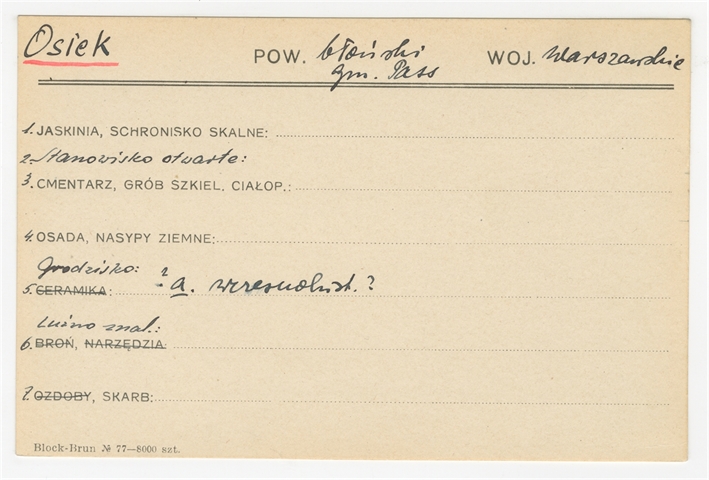 Osiek POW. błoński WOJ. Warszawskie
gm. Pass
1. JASKINIA, SCHRONISKO SKALNE:
2. Stanowisko otwarte:
3. CMENTARZ, GRÓB SZKIEL. CIAŁOP.:
4. OSADA, NASYPY ZIEMNE:
Grodzisko: ?
5. CERAMIKA: a. wczesnohist.?
Luźno znal.:
6. BROŃ, NARZĘDZIA:
7. OZDOBY, SKARB:
Block-Brun № 77—8000 szt.